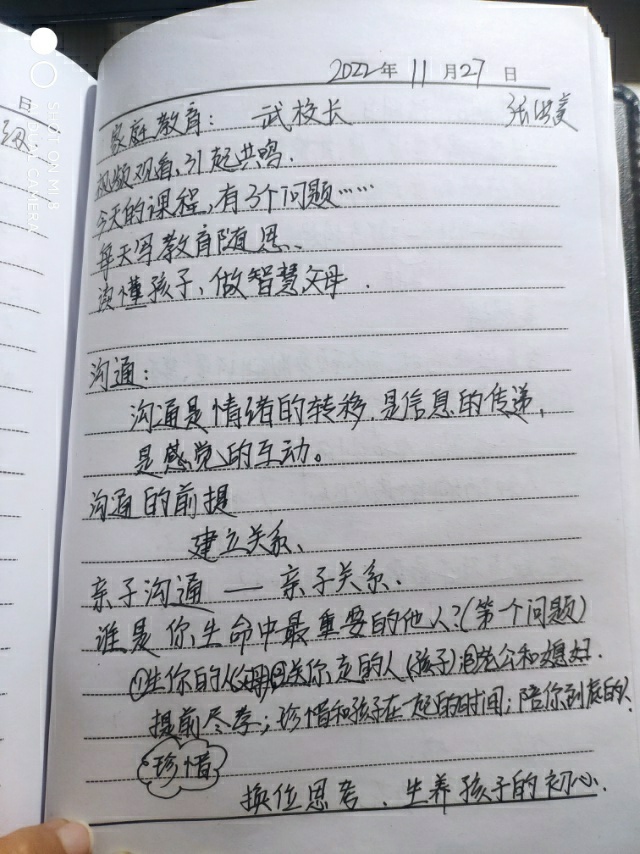 日
SHOT ON MI 8
CAMERA
2022年 11月27日
家庭教育: 武校长 张
视频观看,引起共鸣.
今天的课程,有3个问题……
每天写教育随思、
读懂孩子、做智慧父母.
沟通:
沟通是情绪的转移.是信息的传递,
是感觉的互动。
沟通的前提
建立关系、
亲子沟通 — 亲子关系.
谁是你生命中最重要的他人?(第一个问题)
①生你的人(父母)②送你走的人(孩子)③老公和媳妇.
提前尽孝;珍惜和孩子在一起的时间;陪你到底的人
珍惜
换位思考、生养孩子的初心.